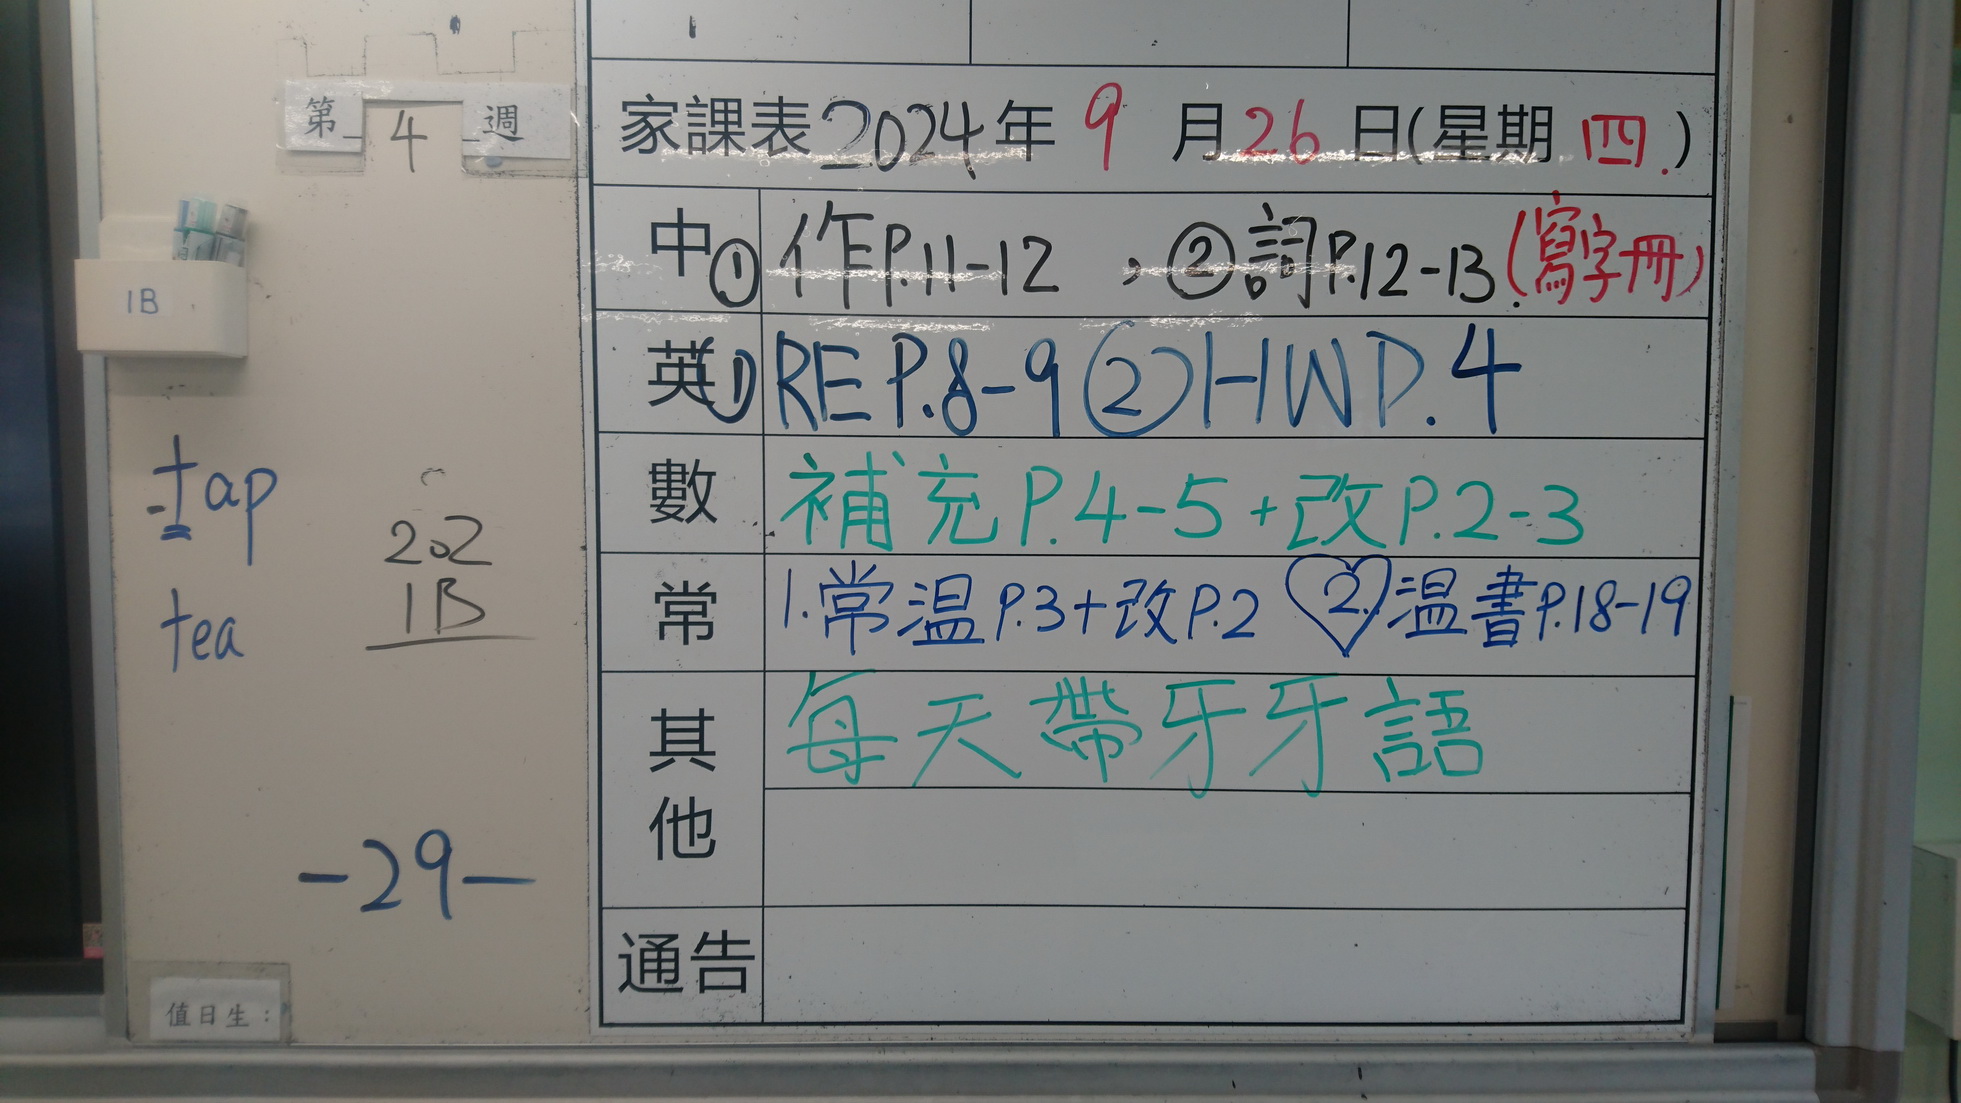 第 4 週
1B
tap
tea
202
1B
-29-
值日生：
家課表2024年 9 月26日(星期 四.)
中 ①作P.11-12 ，②詞P.12-13.(寫字冊)
英 ①REP.8-9 ②HWP.4
數 補充P.4-5+改P.2-3
常 1.常溫P.3+改P.2 2.溫書P.18-19
其他 每天帶牙牙語
通告